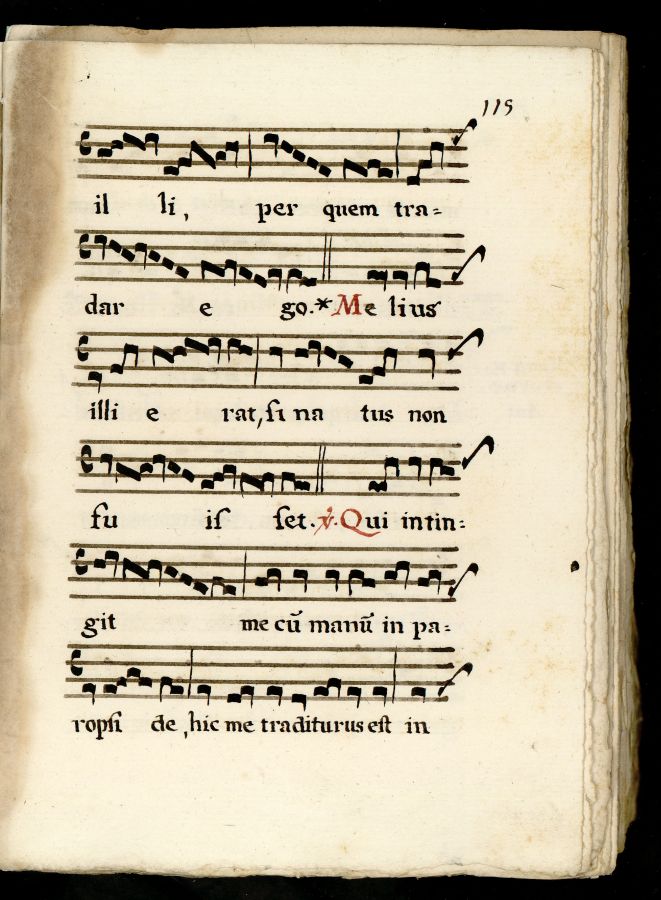 115
il li, per quem tra=
dar e go.* Me lius
illi e rat, si na tus non
fu is set. ℣. Qui intin=
git me cū manū in pa=
ropsi de, hic me traditurus est in